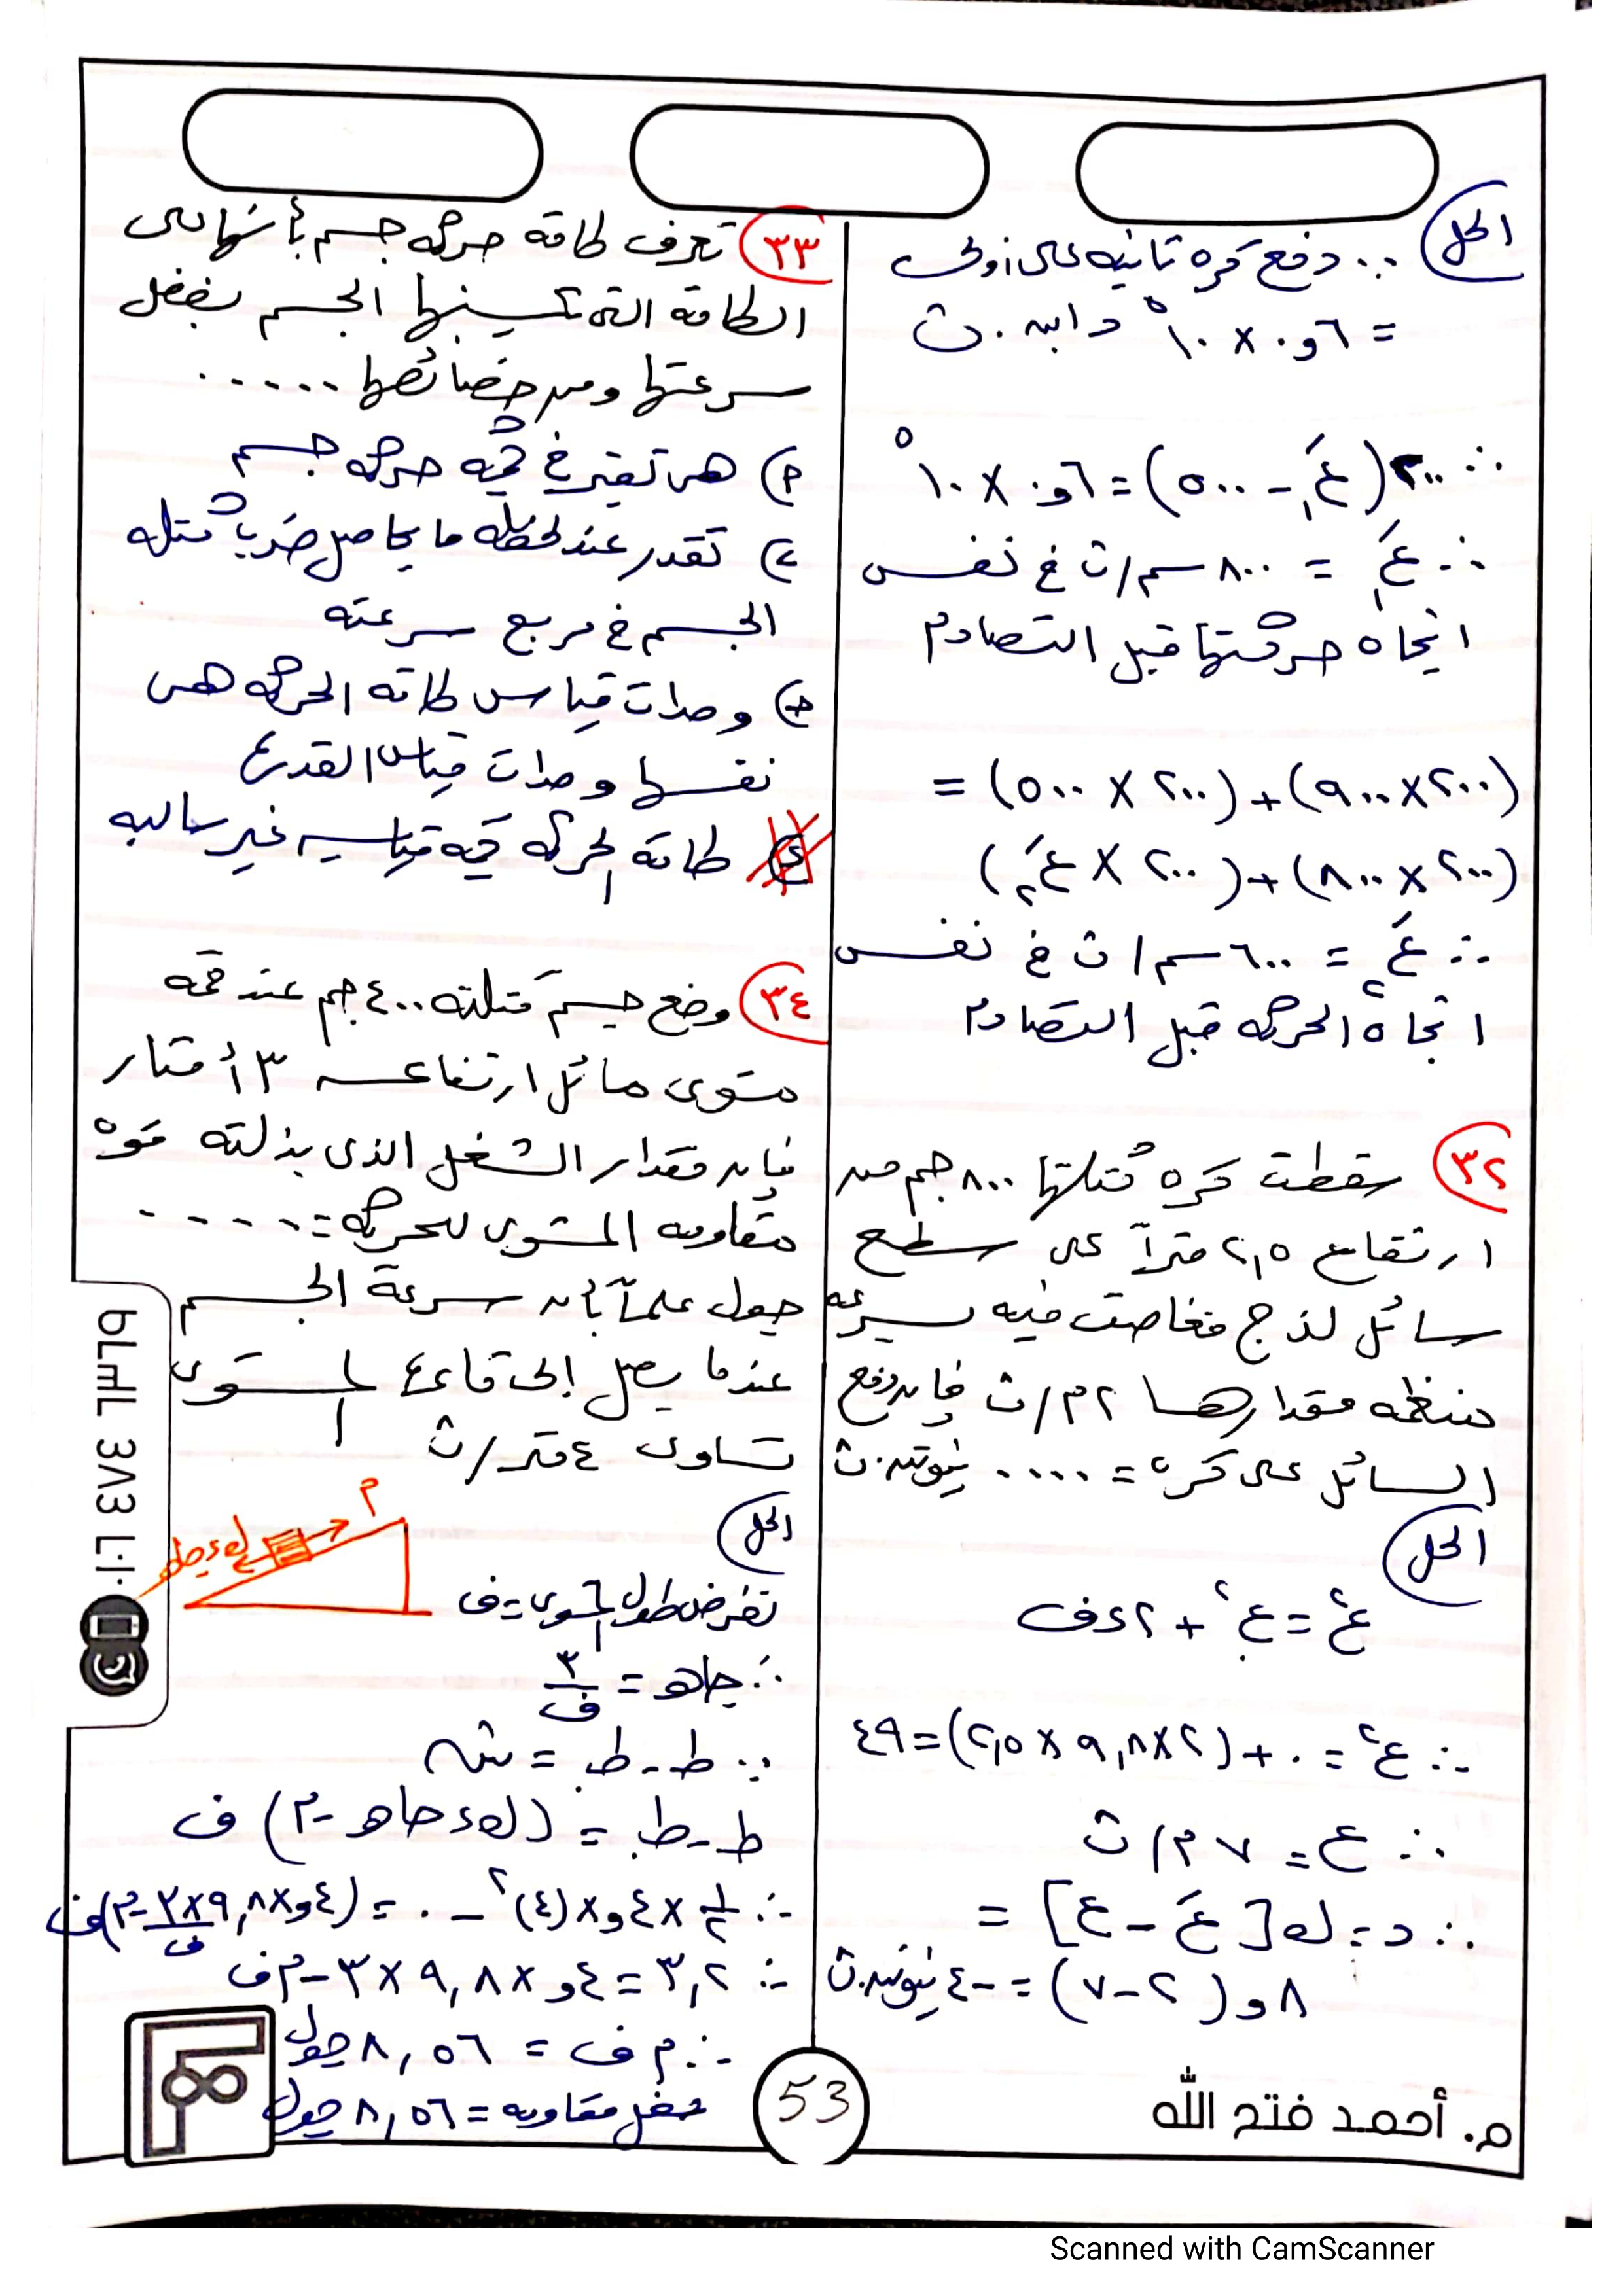 الحل
∵ دفع كره تانيه على أولى
= ٦و٠ × ١٠^٥ داين.ث
∴ ٢٠٠(ع́١ - ٥٠٠) = ٦و٠ × ١٠^٥
∴ ع́١ = ٨٠٠ سم/ث في نفس
اتجاه حركتها قبل التصادم
(٢٠٠×٩٠٠)+(٢٠٠×٥٠٠) =
(٢٠٠×٨٠٠)+(٢٠٠×ع́٢)
∴ ع́٢ = ٦٠٠ سم/ث في نفس
اتجاه الحركه قبل التصادم
٣٢ سقطت كره كتلتها ٨٠٠ جم من
ارتفاع ٢,٥ مترآ على سطح
سائل لزج فغاصت فيه بسرعه
منتظمه مقدارها ٢م/ث فإن دفع
السائل على كره = .... نيوتن.ث
الحل
ع^٢ = ع.^٢ + ٢ءف
∴ ع^٢ = ٠ + (٢×٩,٨×٢,٥) = ٤٩
∴ ع = ٧ م/ث
∴ د = ك[ع́ - ع] =
٨و(٢-٧) = -٤ نيوتن.ث
٣٣ تعرف طاقه حركه جسم بأنها هى
الطاقه التى يكتسبها الجسم بفضل
سرعتها ومن خصائصها .....
أ) هى تغير في كميه حركه جسم
ب) تقدر عند لحظه ما بحاصل ضرب كتله
الجسم في مربع سرعته
ج) وحدات قياس طاقه الحركه هى
نفسها وحدات قياس القدرة
د) طاقه الحركه كميه قياسيه غير سالبه
٣٤ وضع جسم كتلته ٤٠٠ جم عند قمه
مستوى مائل ارتفاعه ٣ أمتار
فإن مقدار الشغل الذى بذلته قوه
مقاومه المستوى للحركه = .....
جول علمآ بأن سرعة الجسم
عندما يصل إلى قاعدة المستوى
تساوى ٤ متر/ث
الحل
م
ك ء جاهـ
نفرض طول المستوى = ف
∴ جاهـ = ٣/ف
∵ ط - ط. = شـ
ط - ط. = (ك ء جاهـ - م) ف
∴ ١/٢ × ٤و × (٤)^٢ - ٠ = (٤و×٩,٨×٣/ف - م)ف
∴ ٣,٢ = ٤و × ٩,٨ × ٣ - م ف
∴ م ف = ٨,٥٦ جول
شغل مقاومه = ٨,٥٦ جول
01.1 383 4mJd
53
م. أحمد فتح الله
Scanned with CamScanner